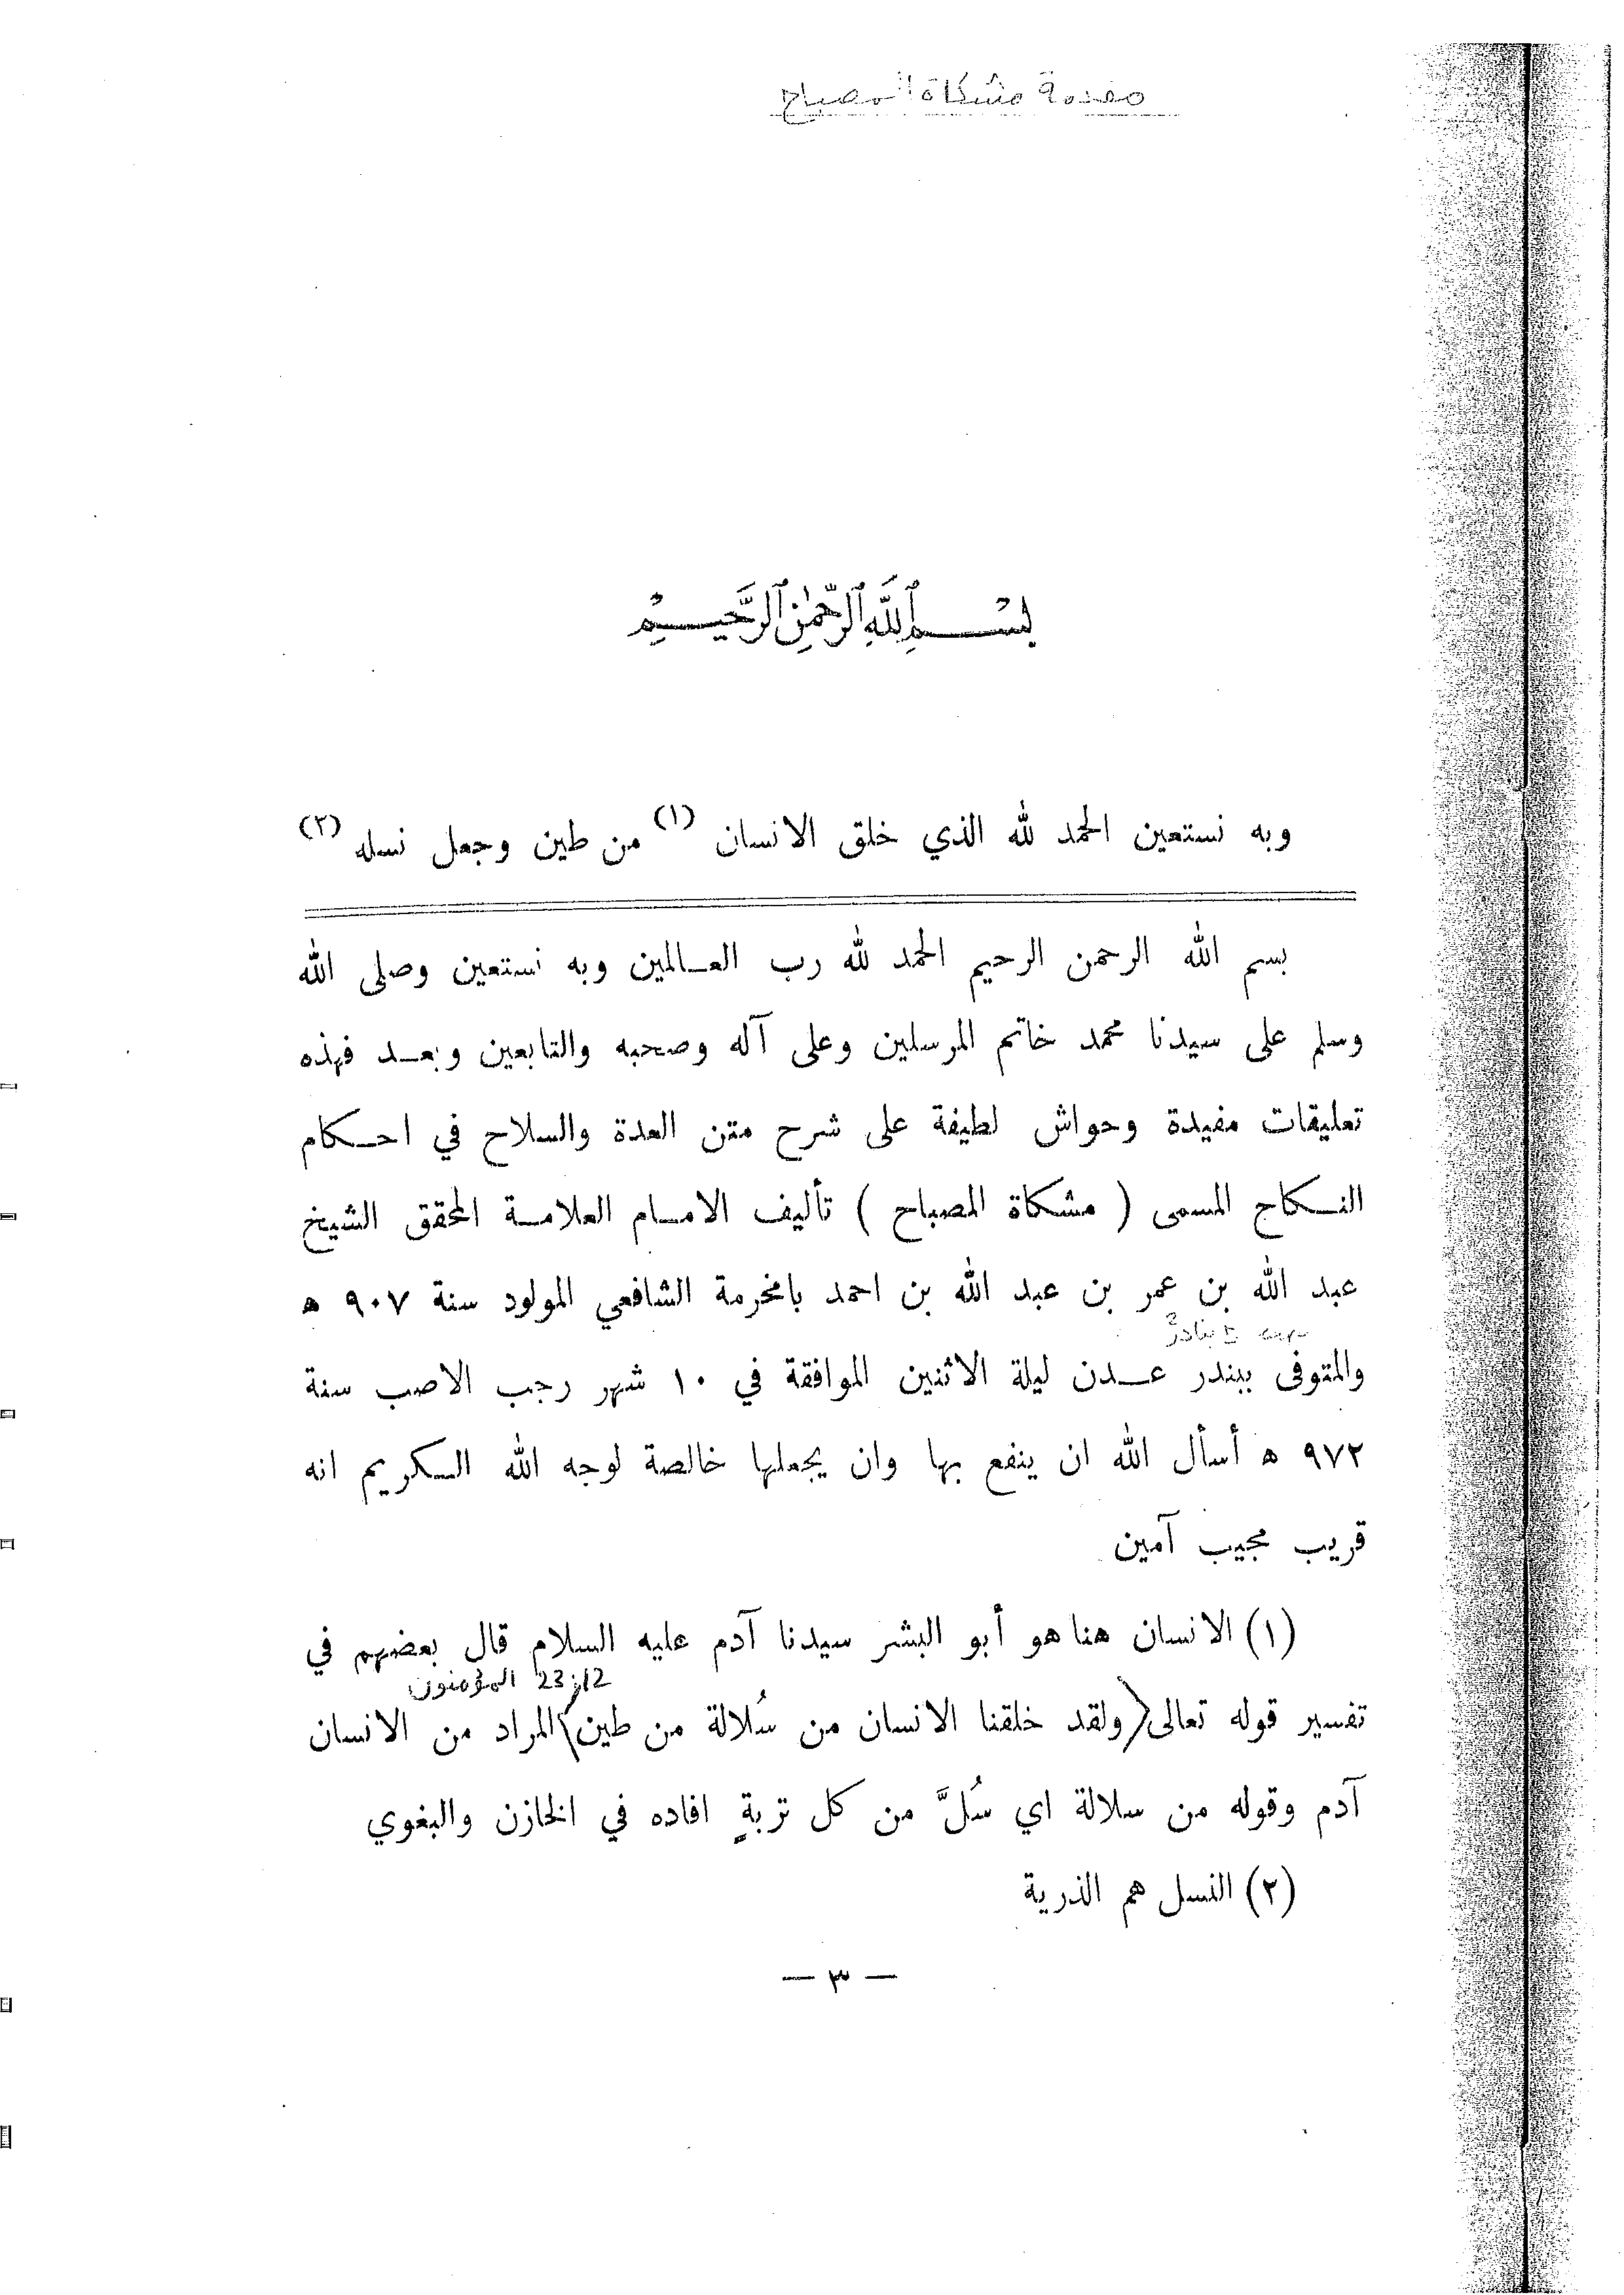 مقدمة مشكاة المصباح
بسم الله الرحمن الرحيم
وبه نستعين الحمد لله الذي خلق الانسان (١) من طين وجعل نسله (٢)
بسم الله الرحمن الرحيم الحمد لله رب العـالمين وبه نستعين وصلى الله
وسلم على سيدنا محمد خاتم المرسلين وعلى آله وصحبه والتابعين وبعـد فهذه
تعليقات مفيدة وحواش لطيفة على شرح متن العدة والسلاح في احـكام
النـكاح المسمى ( مشكاة المصباح ) تأليف الامـام العلامـة المحقق الشيخ
عبد الله بن عمر بن عبد الله بن احمد بامخرمة الشافعي المولود سنة ٩٠٧ ه
بنادر
والمتوفى ببندر عـدن ليلة الاثنين الموافقة في ١٠ شهر رجب الاصب سنة
٩٧٢ ه أسأل الله ان ينفع بها وان يجعلها خالصة لوجه الله الـكريم انه
قريب مجيب آمين
(١) الانسان هنا هو أبو البشر سيدنا آدم عليه السلام قال بعضهم في
23:12 المؤمنون
تفسير قوله تعالى (ولقد خلقنا الانسان من سُلالة من طين) المراد من الانسان
آدم وقوله من سلالة اي سُلَّ من كل تربةٍ افاده في الخازن والبغوي
(٢) النسل هم الذرية
— ٣ —